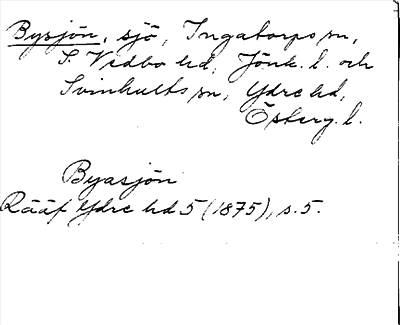 Bysjön, sjö, Ingatorps sn,
S. Vedbo hd, Jönk. l. och
Svinhults sn, Ydre hd,
Österg. l.
Byasjön
Rääf Ydre hd 5 (1875), s. 5.